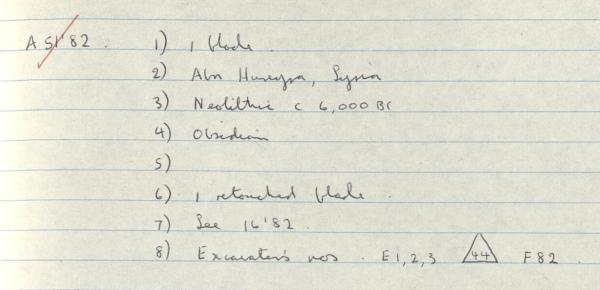 A 51'82. 1) 1 blade.
2) Abu Hureyra, Syria
3) Neolithic c 6,000 BC
4) Obsidian
5)
6) 1 retouched blade.
7) See 16'82.
8) Excavator's nos. E1,2,3 44 F82.